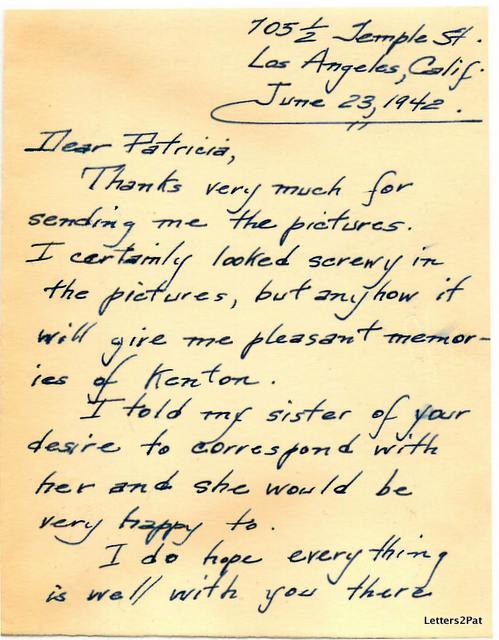 705 ½ Temple St.
Los Angeles, Calif.
June 23, 1942.
Dear Patricia,
Thanks very much for
sending me the pictures.
I certainly looked screwy in
the pictures, but anyhow it
will give me pleasant memor-
ies of Kenton.
I told my sister of your
desire to correspond with
her and she would be
very happy to.
I do hope everything
is well with you there
Letters2Pat